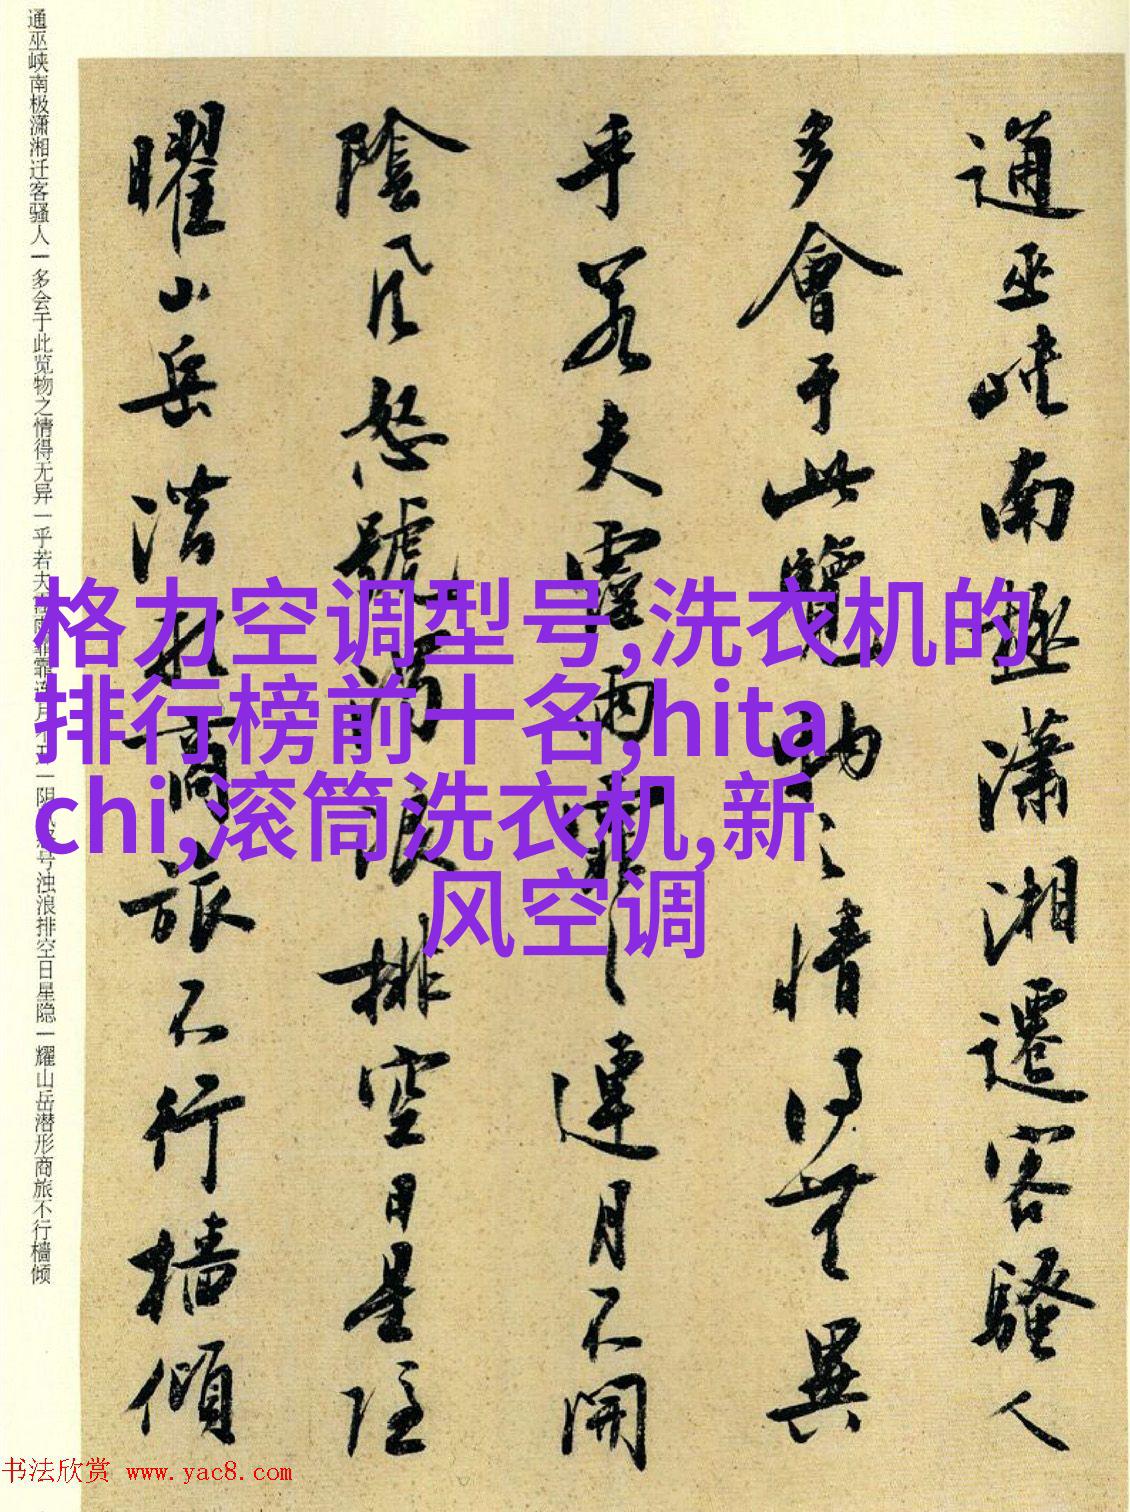 通巫峡南極瀟湘遷客騷人
多會于此覽物之情得無異
乎若夫霪雨霏〻連月不開
陰風怒號濁浪排空日星隱
曜山岳潜形商旅不行檣傾
通巫峡南极潇湘迁客骚人一多会于此览物之情得无异一乎若夫雨霏霏连月一阴号浊浪排空日星隐一耀山岳潜形商旅不行樯倾
格力空调型号,洗衣机的
排行榜前十名,hita
chi,滚筒洗衣机,新
风空调
书法欣赏 www.yac8.com